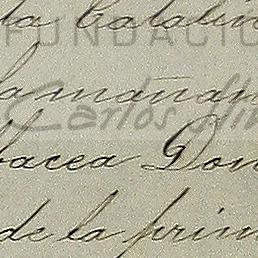 la Catalin
FUNDACIÓ
la mañan
Carlos
bacea Don
de la prim